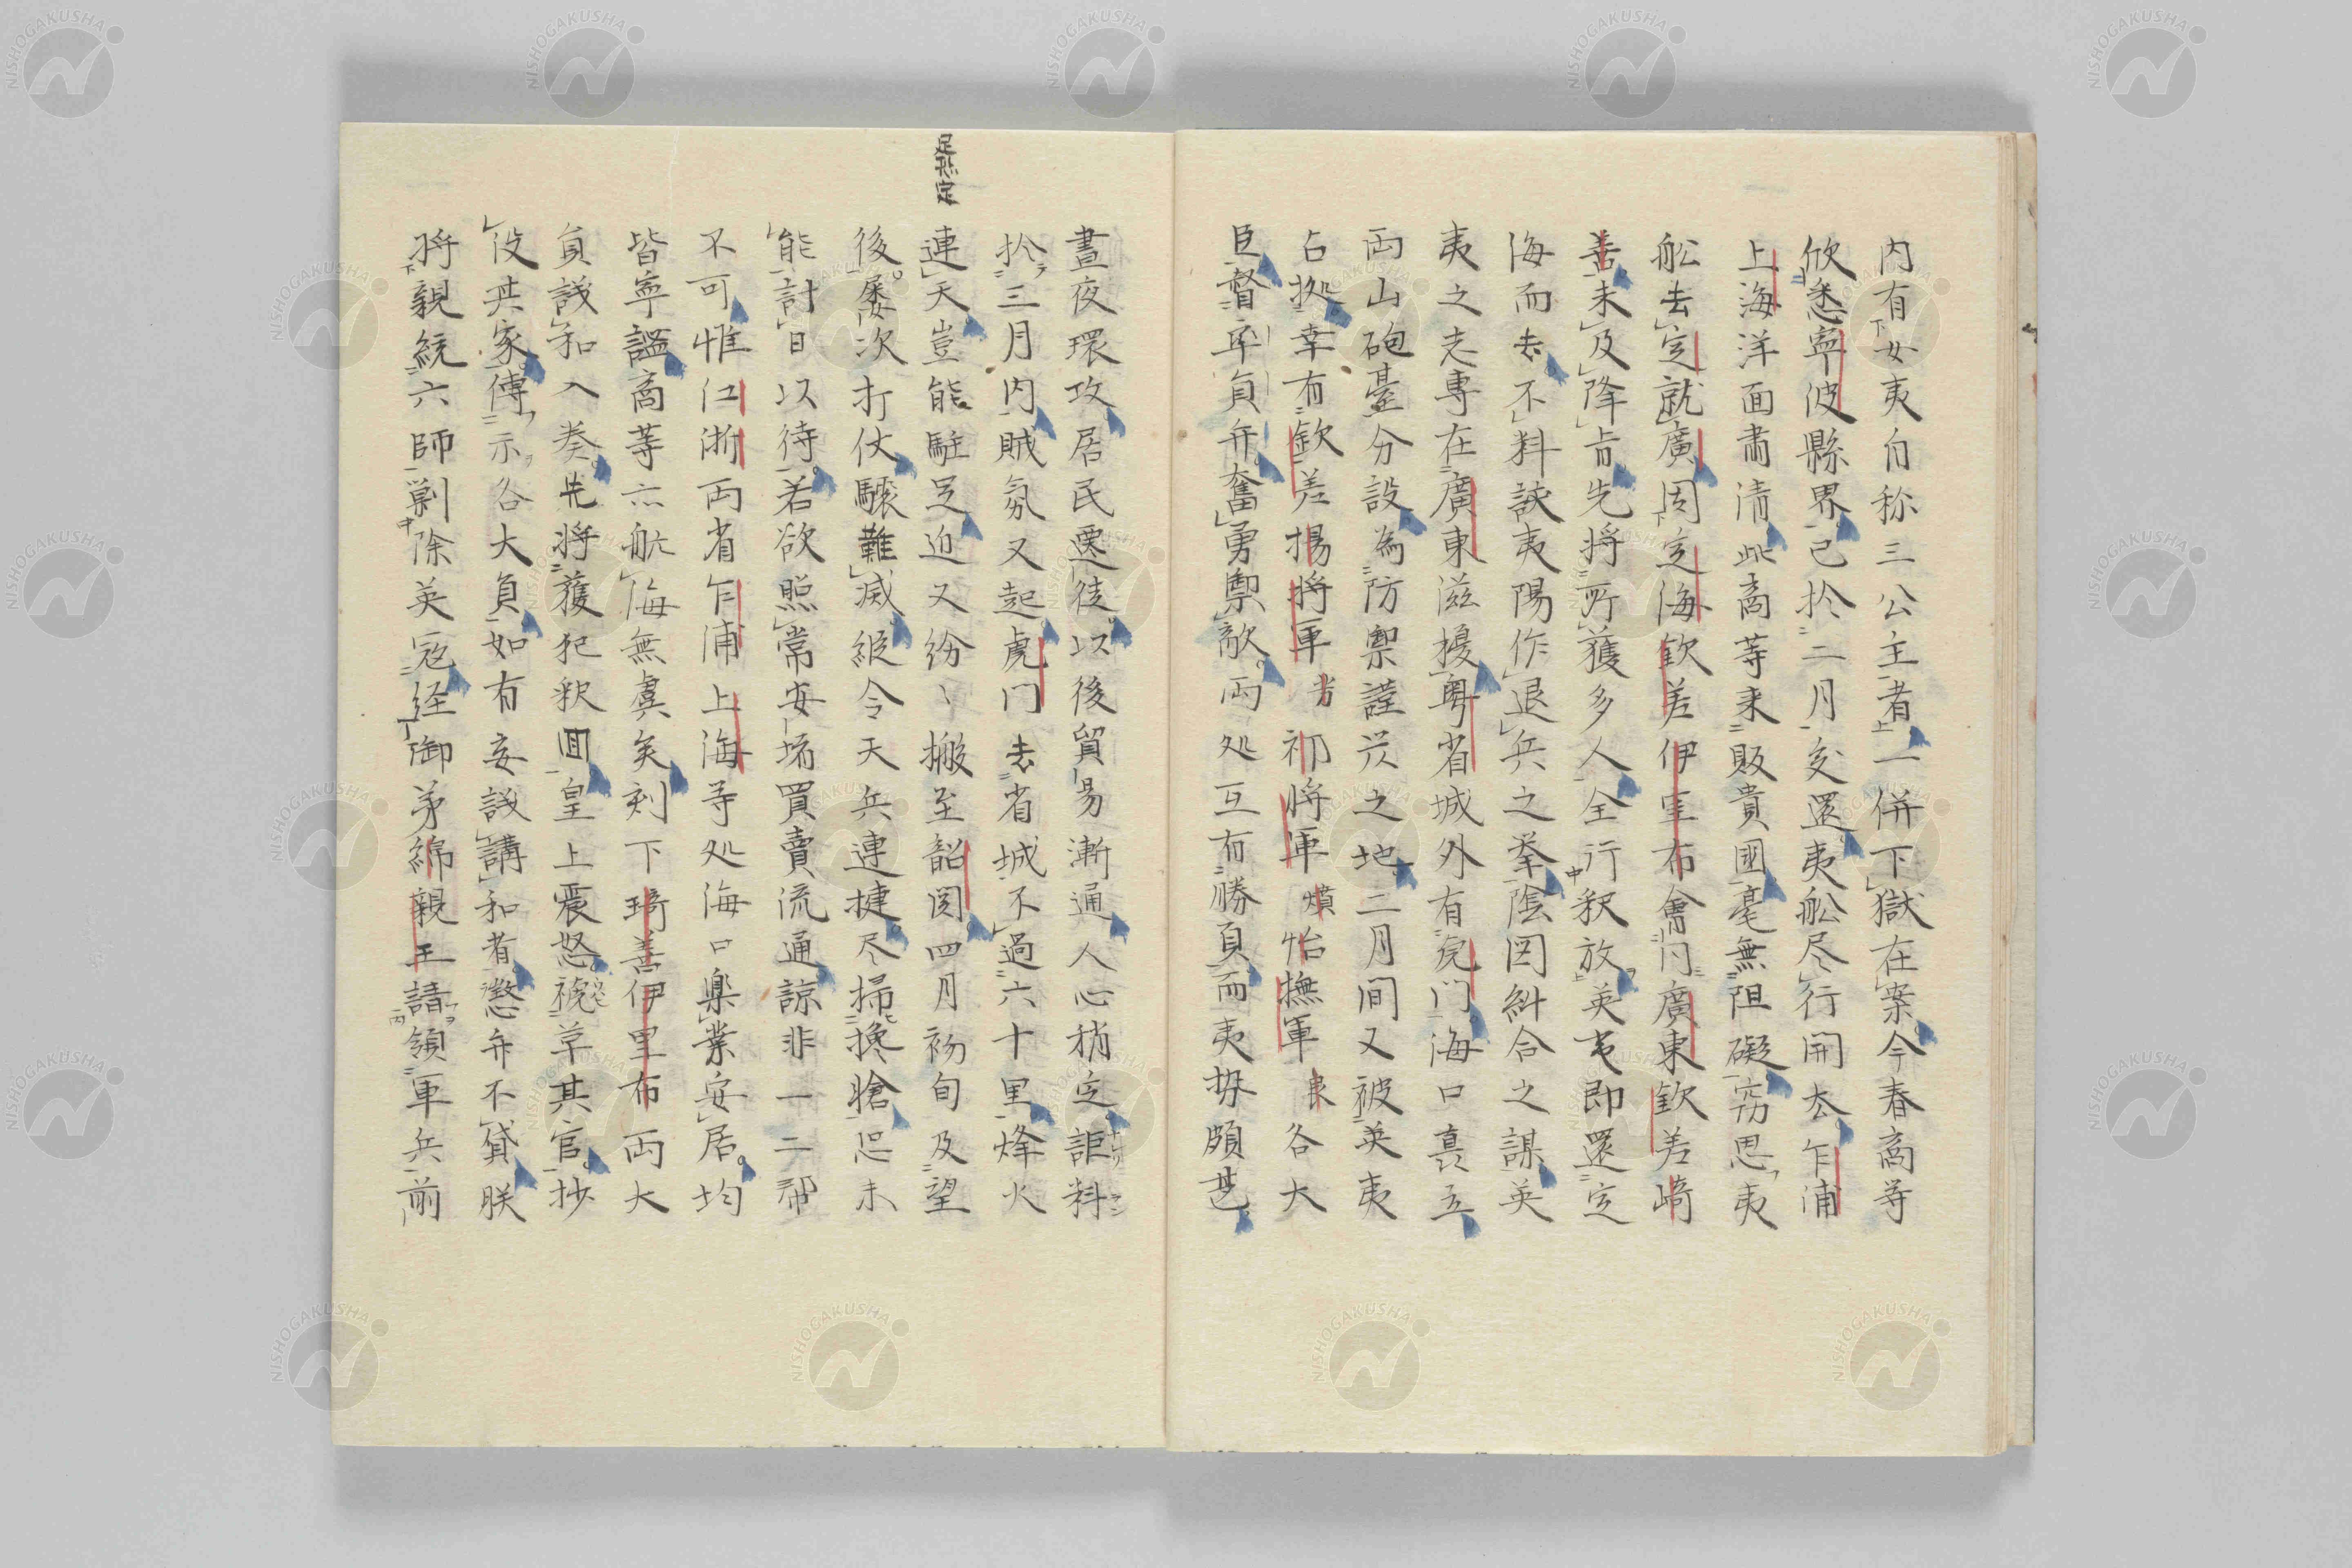 内有女夷自称三公主者一併下獄在案今春商等
欣悉寧波縣界已扵二月交還夷舩尽行開去乍浦
上海洋面肅清此商等来販貴國毫無阻礙窃思夷
舩去定就廣因定海欽差伊里布會同廣東欽差崎
善未及降旨先将所獲多人全行釈放英夷即還定
海而去不料該夷陽作退兵之挙陰図糾合之謀英
夷之志専在廣東滋擾粤省城外有虎門海口真立
両山砲臺分設為防禦謹災之地二月間又被英夷
占拠幸有欽差揚将軍芳祁将軍𡑞怡撫軍良各大
臣督率員弁奮勇禦敵両処互有勝負而夷拚頗甚
晝夜環攻居民遷徙以後貿易漸通人心稍定詎料
扵三月内賊氛又起虎门去省城不過六十里烽火
連天豈能駐足迫又纷〻搬至韶関四月初旬及望
後屡次打仗驟難滅縦令天兵連捷尽掃搀槍恐未
能計日以待若欲照常安堵買賣流通諒非一二帮
不可惟江浙両省乍浦上海等処海口樂業安居均
皆寧謐商等亦航海無虞矣刻下琦善伊里布両大
員議和入奏先将獲犯釈回皇上震怒褫革其官抄
役其家傳示各大員如有妄議講和者懲弁不貸朕
将親統六師剿除英寇経御弟綿親王請領軍兵前
足恐定